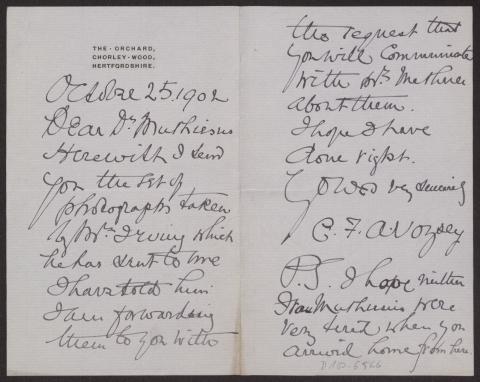 THE · ORCHARD,
CHORLEY-WOOD,
HERTFORDSHIRE.
October 25. 1902
Dear Dr Muthesius
Herewith I send
you the set of
photographs taken
by Mr. Irving which
he has sent to me
I have told him
I am forwarding
them to you with
the request that
you will communicate
with Mr
about them.
I hope I have
done right.
Yours very sincerely
C. F. A. Voysey
P.S. I hope neither
Muthesius were
very tired when you
arrived home from here